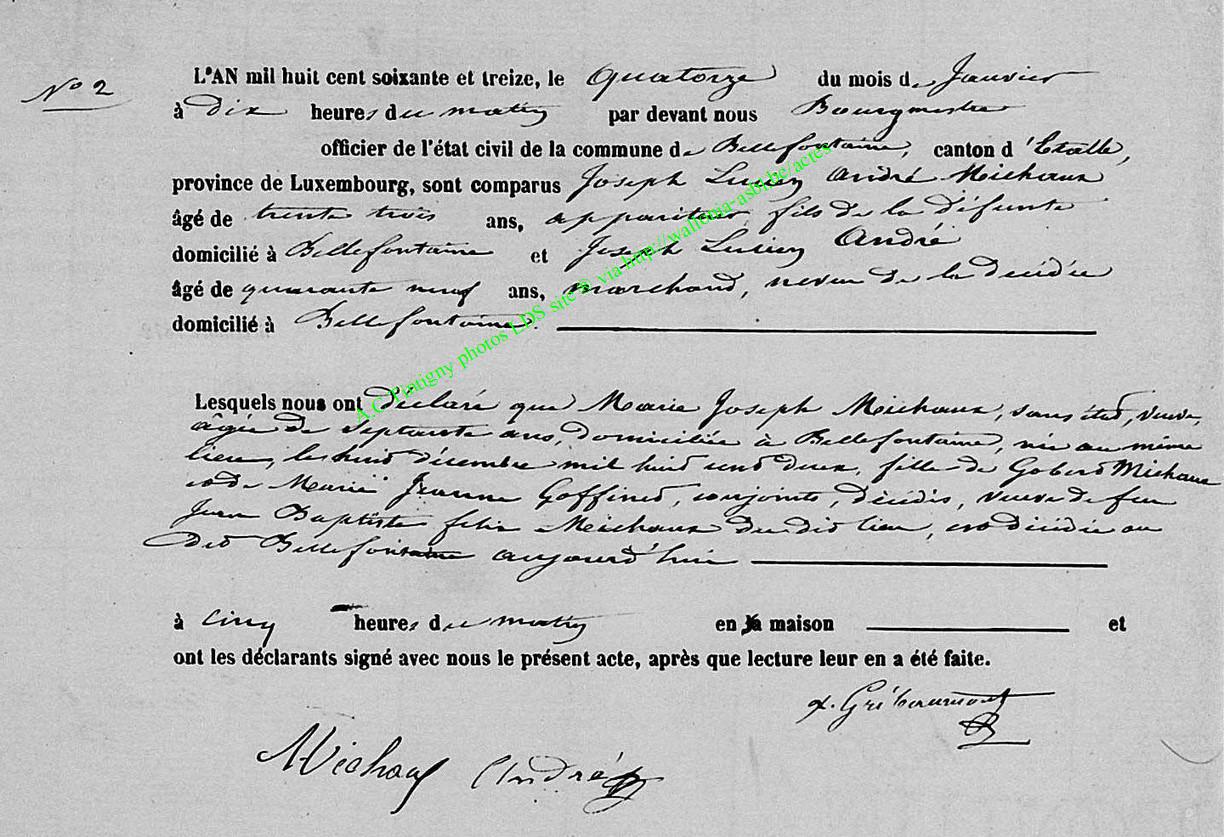 No 2
L'AN mil huit cent soixante et treize, le quatorze du mois de Janvier
à dix heures du matin par devant nous Bourgmestre
officier de l'état civil de la commune de Bellefontaine, canton d'Etalle,
province de Luxembourg, sont comparus Joseph Lucien André Michaux
âgé de trente trois ans, appariteur, fils de la défunte
domicilié à Bellefontaine et Joseph Lucien André
âgé de quarante neuf ans, marchand, neveu de la décédée
domicilié à Bellefontaine.
Lesquels nous ont déclaré que Marie Joseph Michaux, sans état, veuve,
âgée de septante ans, domiciliée à Bellefontaine, née au même
lieu, le huit décembre mil huit cent deux, fille de Gobert Michaux
et de Marie Jeanne Goffinet, conjoints, décédés, veuve de feu
Jean Baptiste felix Michaux du dit lieu, est décédée au
dit Bellefontaine aujourd'hui
à cinq heures du matin en sa maison et
ont les déclarants signé avec nous le présent acte, après que lecture leur en a été faite.
Gribaumont
Michaux André
A.C. Tintigny photos LDS site © via http://wallonia-asbl.be/actes